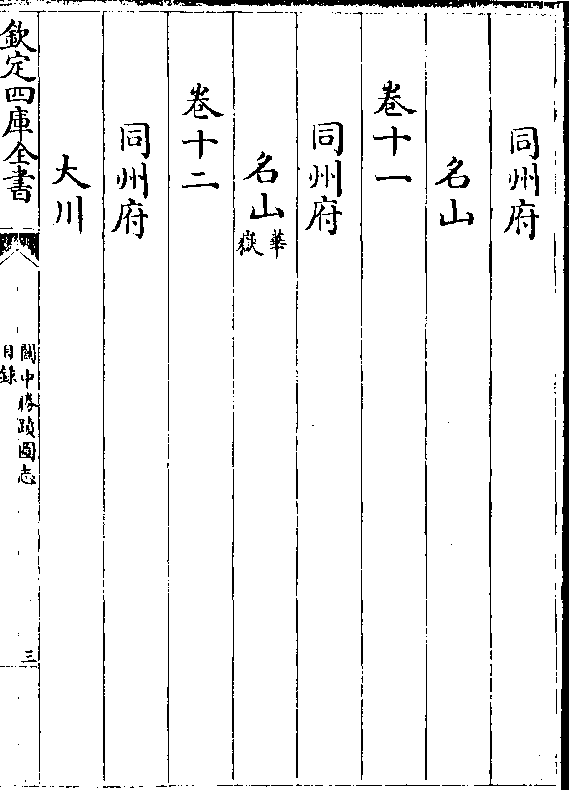 同州府
名山
卷十一
同州府
名山華嶽
卷十二
同州府
大川
欽定四庫全書
關中勝蹟圖志
目錄
三